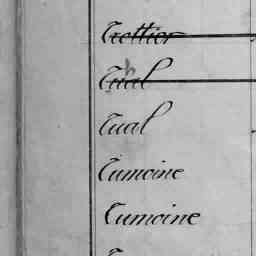 Trottier
Tual
Tual
Tumoine
Tumoine